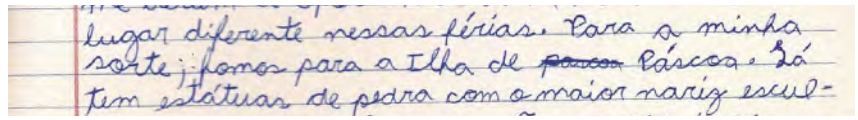 lugar diferente nessas férias. Para a minha
sorte; fomos para a Ilha de pascoa Páscoa. Lá
tem estátuas de pedra com o maior nariz escul-